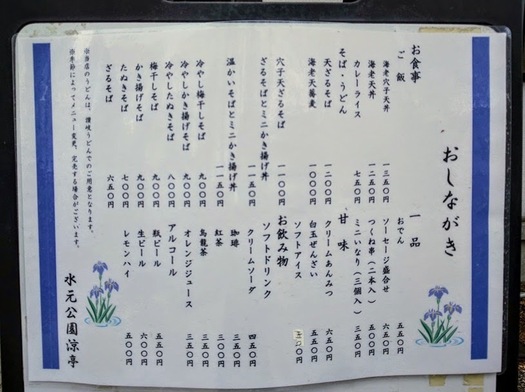 おしながき
お食事
ご飯
海老穴子天丼 一三五〇
海老天丼 一二五〇
カレーライス 七五〇
そば・うどん
天ざるそば 一二〇〇
海老天蕎麦 一〇〇〇
穴子天ざるそば 一一〇〇
ざるそばとミニかき揚げ丼 一一五〇
温かいそばとミニかき揚げ丼 一一五〇
冷やし梅干しそば 九〇〇
冷やしかき揚げそば 九〇〇
冷やしたぬきそば 八〇〇
梅干しそば 九〇〇
かき揚げそば 九〇〇
たぬきそば 七〇〇
ざるそば 六五〇
※当店のうどんは、讃岐うどんでのご用意となります。
※季節によってメニュー変更、完売する場合がございます。
一品
おでん 五五〇円
ソーセージ盛合せ 六五〇円
つくね串（二本入） 五〇〇円
ミニいなり（三個入） 三五〇円
甘味
クリームあんみつ 六五〇円
白玉ぜんざい 五五〇円
ソフトアイス
お飲み物
ソフトドリンク
クリームソーダ 四五〇円
珈琲 三五〇円
紅茶 三〇〇円
烏龍茶 三五〇円
オレンジジュース 三五〇円
アルコール
瓶ビール 五五〇円
生ビール 六〇〇円
レモンハイ 五〇〇円
水元公園涼亭